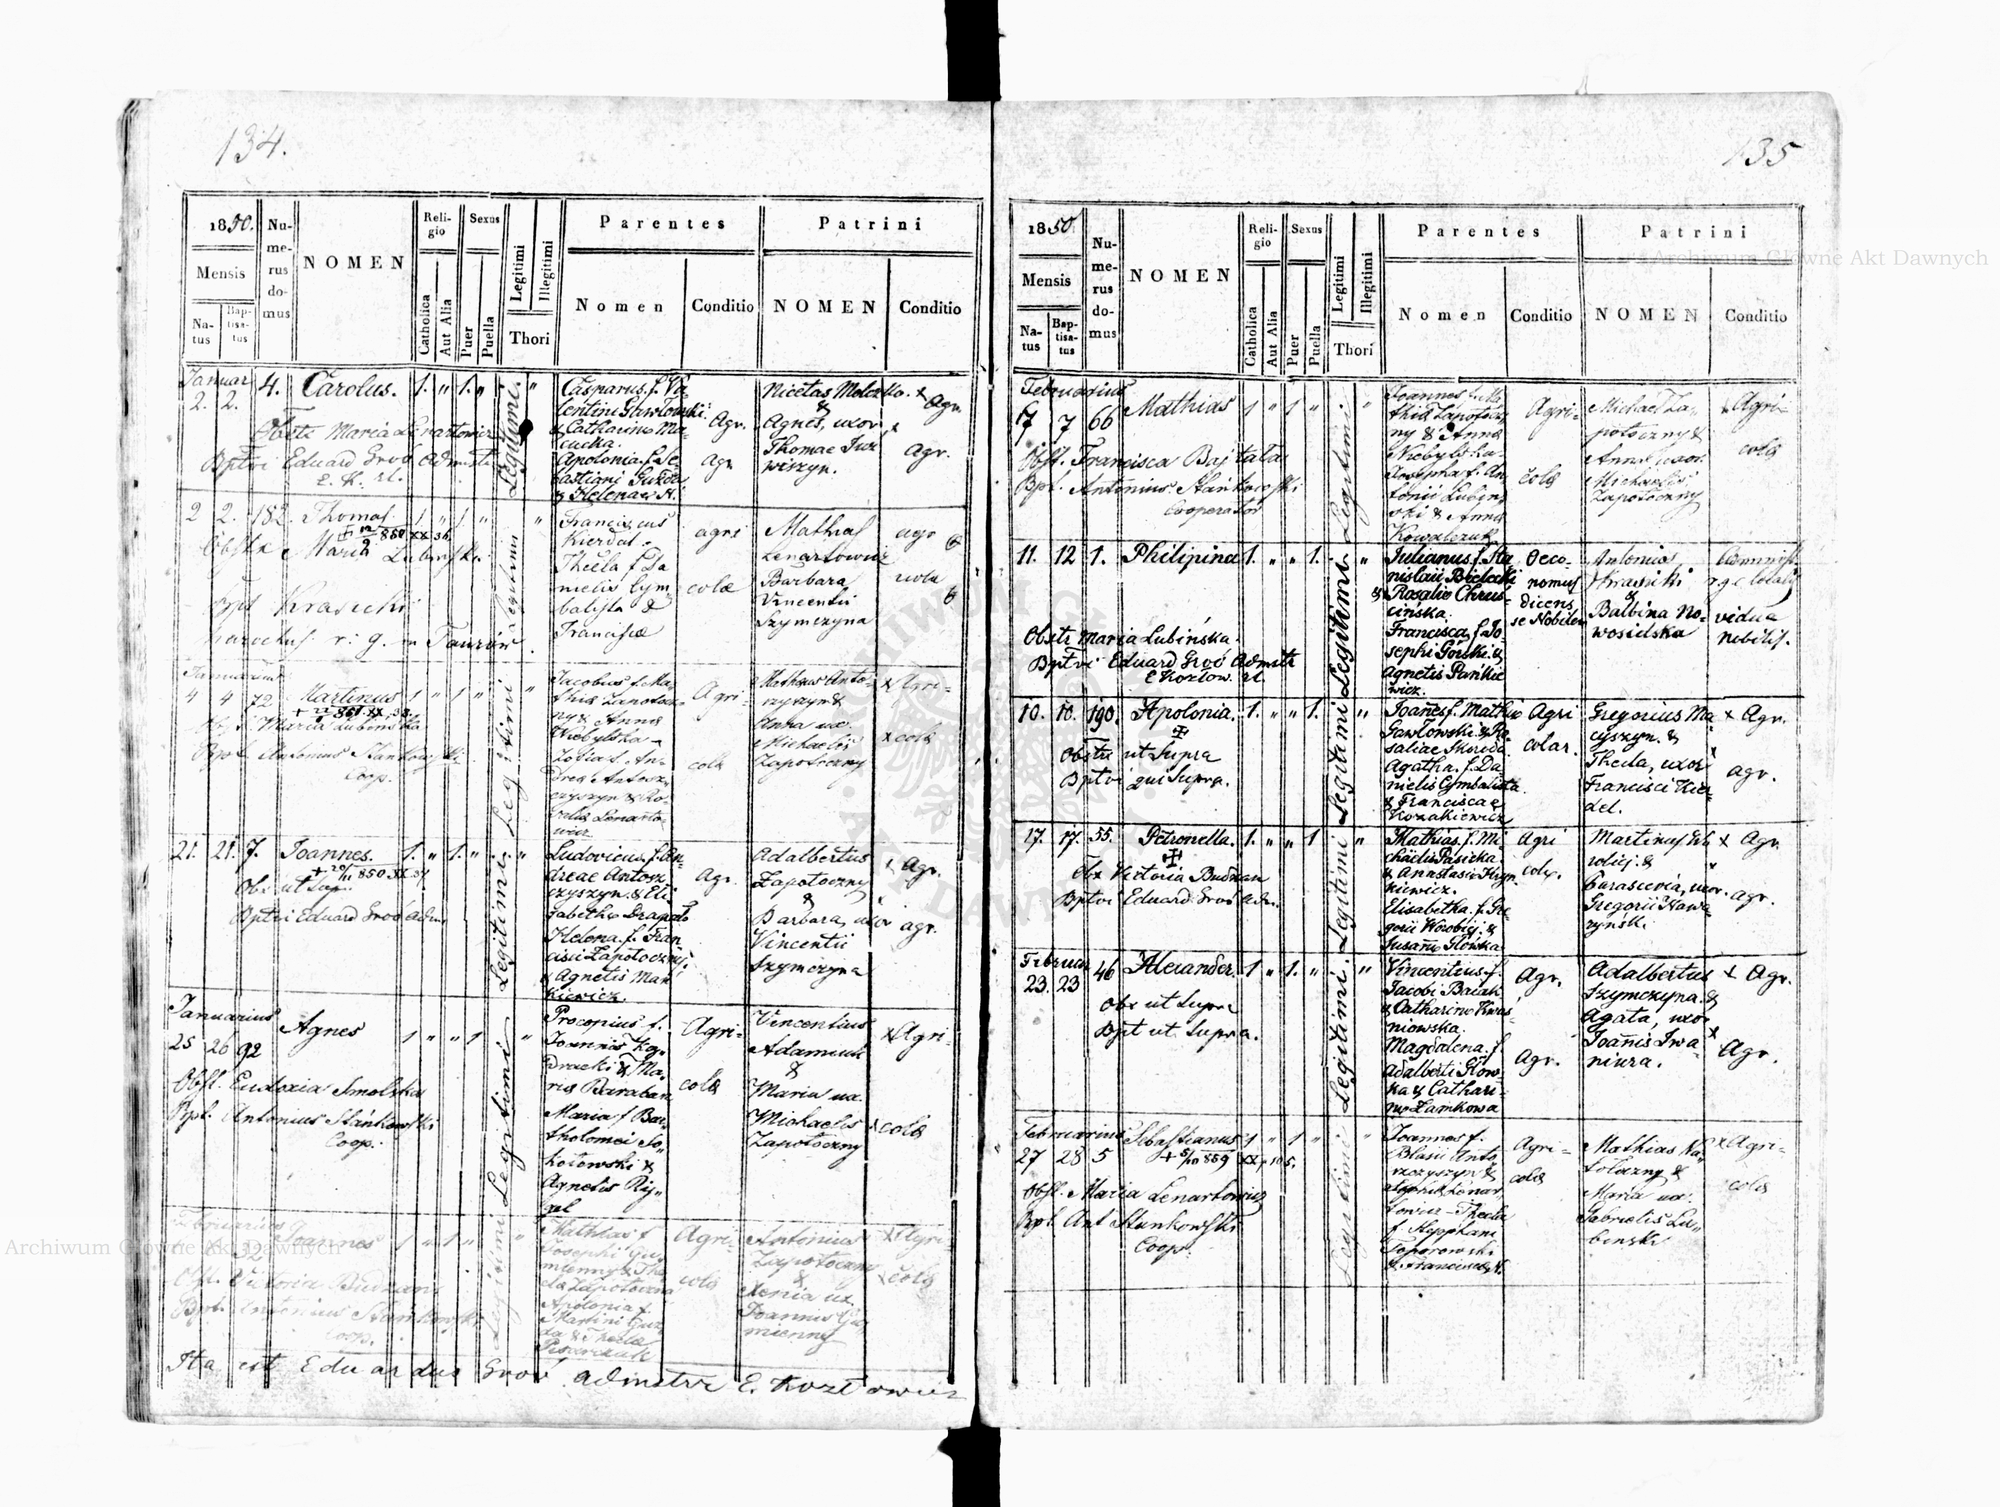 134.
1850.
Mensis
Na-
tus
Bap-
tisa-
tus
Nu-
me-
rus
do-
mus
NOMEN
Reli-
gio
Catholica
Aut Alia
Sexus
Puer
Puella
Legitimi
Illegitimi
Thori
Parentes
Nomen
Conditio
Patrini
NOMEN
Conditio
Januar
2. 2. 4. Carolus. 1. " 1. "
Obstx Maria Lenartowicz
Bptvi Eduard Groó Admstr
E. K. rl.
Legitimi
Casparus. f. Va-
lentini Gawłowski
& Catharina Ma-
cucka.
Apolonia. f. Se-
bastiani Guzda
& Helenae N.
Agr.
Agr
Nicetas Motczko.
&
Agnes, uxor
Thomae Iwa
wiszyn.
x Agr.
Agr.
2 2. 182. Thomas. 1 " 1 "
Obstx Maria Lubinska
Franciscus
Kierdal
Thecla f. Da
nielis Cym
balista &
Franciscae
agri
colae
Mathias
Lenartowicz
Barbara
Vincentii
Szymczyna
agr
cola
Januarius
4 4 72 Martinus 1 " 1 "
Obs. Maria Lubinska
Bpt. Antonius Stankowski
Coop.
Legitimi
Jacobus f. Ma-
thia Zapotocz-
ny & Anna
Niebylska
Zofia f. An-
drea Antosz-
czyszyn & Ro-
salia Lenarto-
wicz
Agri-
cola
Matheus Anto-
nyszyn &
Anna ux.
Michaelis
Zapotoczny
x Agri-
x cola
21. 21. 7. Joannes. 1. " 1. "
Obs ut Sup.
Bptvi Eduard Groó Adm.
Legitimi
Ludovicus. f. An-
dreae Antosz
czyszyn. & Eli
sabetha Dragało
Helena. f. Fran
cisci Zapotoczny.
& Agnetis Mań
kiewicz.
Agr.
Adalbertus
Zapotoczny
&
Barbara, uxor
Vincentii
Szymczyna
Agr.
agr.
Januarius
25 26 92 Agnes 1 " " 1
Obst. Eudoxia Smolska
Bpt. Antonius Stankowski
Coop.
Legitimi
Procopius f.
Joannis Ko-
dracki & Ma-
ria Baraban
Maria f Bar-
tholomei So-
kołowski &
Agnetis Ry-
gel
Agri-
cola
Vincentius
Adamiuk
&
Maria ux.
Michaelis
Zapotoczny
x Agri-
x cola
Februarius
Joannes 1 " 1 "
Obst. Victoria Budnan
Bpt. Antonius Stankowski
Coop.
Legitimi
Mathias f
Josephi Gu-
mienny & The
cla Zapotoczna
Apolonia f.
Martini Guz-
da & Thecla
Agri-
cola
Antonius
Zapotoczny
&
Xenia ux.
Joannis Gu-
mienny
x Agri-
x cola
Ita est Eduardus Groó admstrr E. Kozłowiec
135
1850.
Mensis
Na-
tus
Bap-
tisa-
tus
Nu-
me-
rus
do-
mus
NOMEN
Reli-
gio
Catholica
Aut Alia
Sexus
Puer
Puella
Legitimi
Illegitimi
Thori
Parentes
Nomen
Conditio
Patrini
NOMEN
Conditio
Februarius
7 7 66 Mathias 1 " 1 "
Obst. Francisca Bajtala
Bpt. Antonius Stankowski
Cooperator
Legitimi
Joannes f. Ma
thia Zapotocz
ny & Anna
Niebylska
Josepha f. An
tonii Lubin
ski & Anna
Kowalczuk
Agri-
cola
Michael Za-
potoczny &
Anna uxor
Michaelis
Zapotoczny
x Agri-
cola
11. 12 1. Philipina 1. " " 1.
Obstx Maria Lubińska.
Bptvi Eduard Groó Admstr
E Kozłow. rl.
Legitimi
Julianus f. Sta
nislaii Bielecki
& Rosalia Chrus-
cińska.
Francisca, f. Jo-
sephi Górski. &
Agnetis Pańkie
wicz.
Oeco-
nomus
dicens
se Nobilem
Antonius
Krasnicki
&
Balbina No-
wosielska
vidua
nobilis.
10. 10. 190. Apolonia. 1. " " 1.
Obstx ut Supra
Bptvi qui Supra.
Legitimi
Joañes f. Mathia
Gawłowski & Ro
saliae Skoreda
Agatha. f. Da
nielis Cymbalista
& Franciscae
Kozakiewicz
Agri
colar.
Gregorius Ma
cyszyn. &
Thecla, uxor
Francisci Kier
del.
x Agr.
agr.
17. 17. 55. Petronella. 1. " " 1
Obs Victoria Budnan
Bptvi Eduard Groó Adm.
Legitimi
Mathias. f. Mi
chaelis Pasieka
& Anastasia Hryn
kiewicz.
Elisabetha. f. Gre
gorii Worobij. &
Susana Główka
Agri
colar.
Martinus Wo
robij. &
Parascevia, uxor
Gregorii Nawa
ryński.
x Agr.
agr.
Februar
23. 23 46 Alexander. 1 " 1. "
Obs ut Supra
Bpt ut Supra.
Legitimi
Vincentius f.
Jacobi Baiak
& Catharina Kwas
niowska.
Magdalena. f.
Adalberti Głów
ka & Cathari-
na Zamkowa
Agr.
Agr.
Adalbertus
Szymczyna. &
Agata, uxor
Joañis Iwa-
niura.
x Agr.
Agr.
Februarius
27 28 5 Sebastianus 1 " 1 "
Obst. Maria Lenartowicz
Bpt. Ant Stankowski
Coop.
Legitimi
Joannes f.
Blasii Anto
szczyszyn &
Lenar-
towicz - Thecla
f. Stephani
Toporowski
& Francisca N.
Agri-
cola
Mathias Za-
potoczny &
Maria ux.
Gabrielis Lu-
binski
x Agri-
cola
Archiwum Główne Akt Dawnych
Archiwum Główne Akt Dawnych
ARCHIWUM GŁÓWNE AKT DAWNYCH